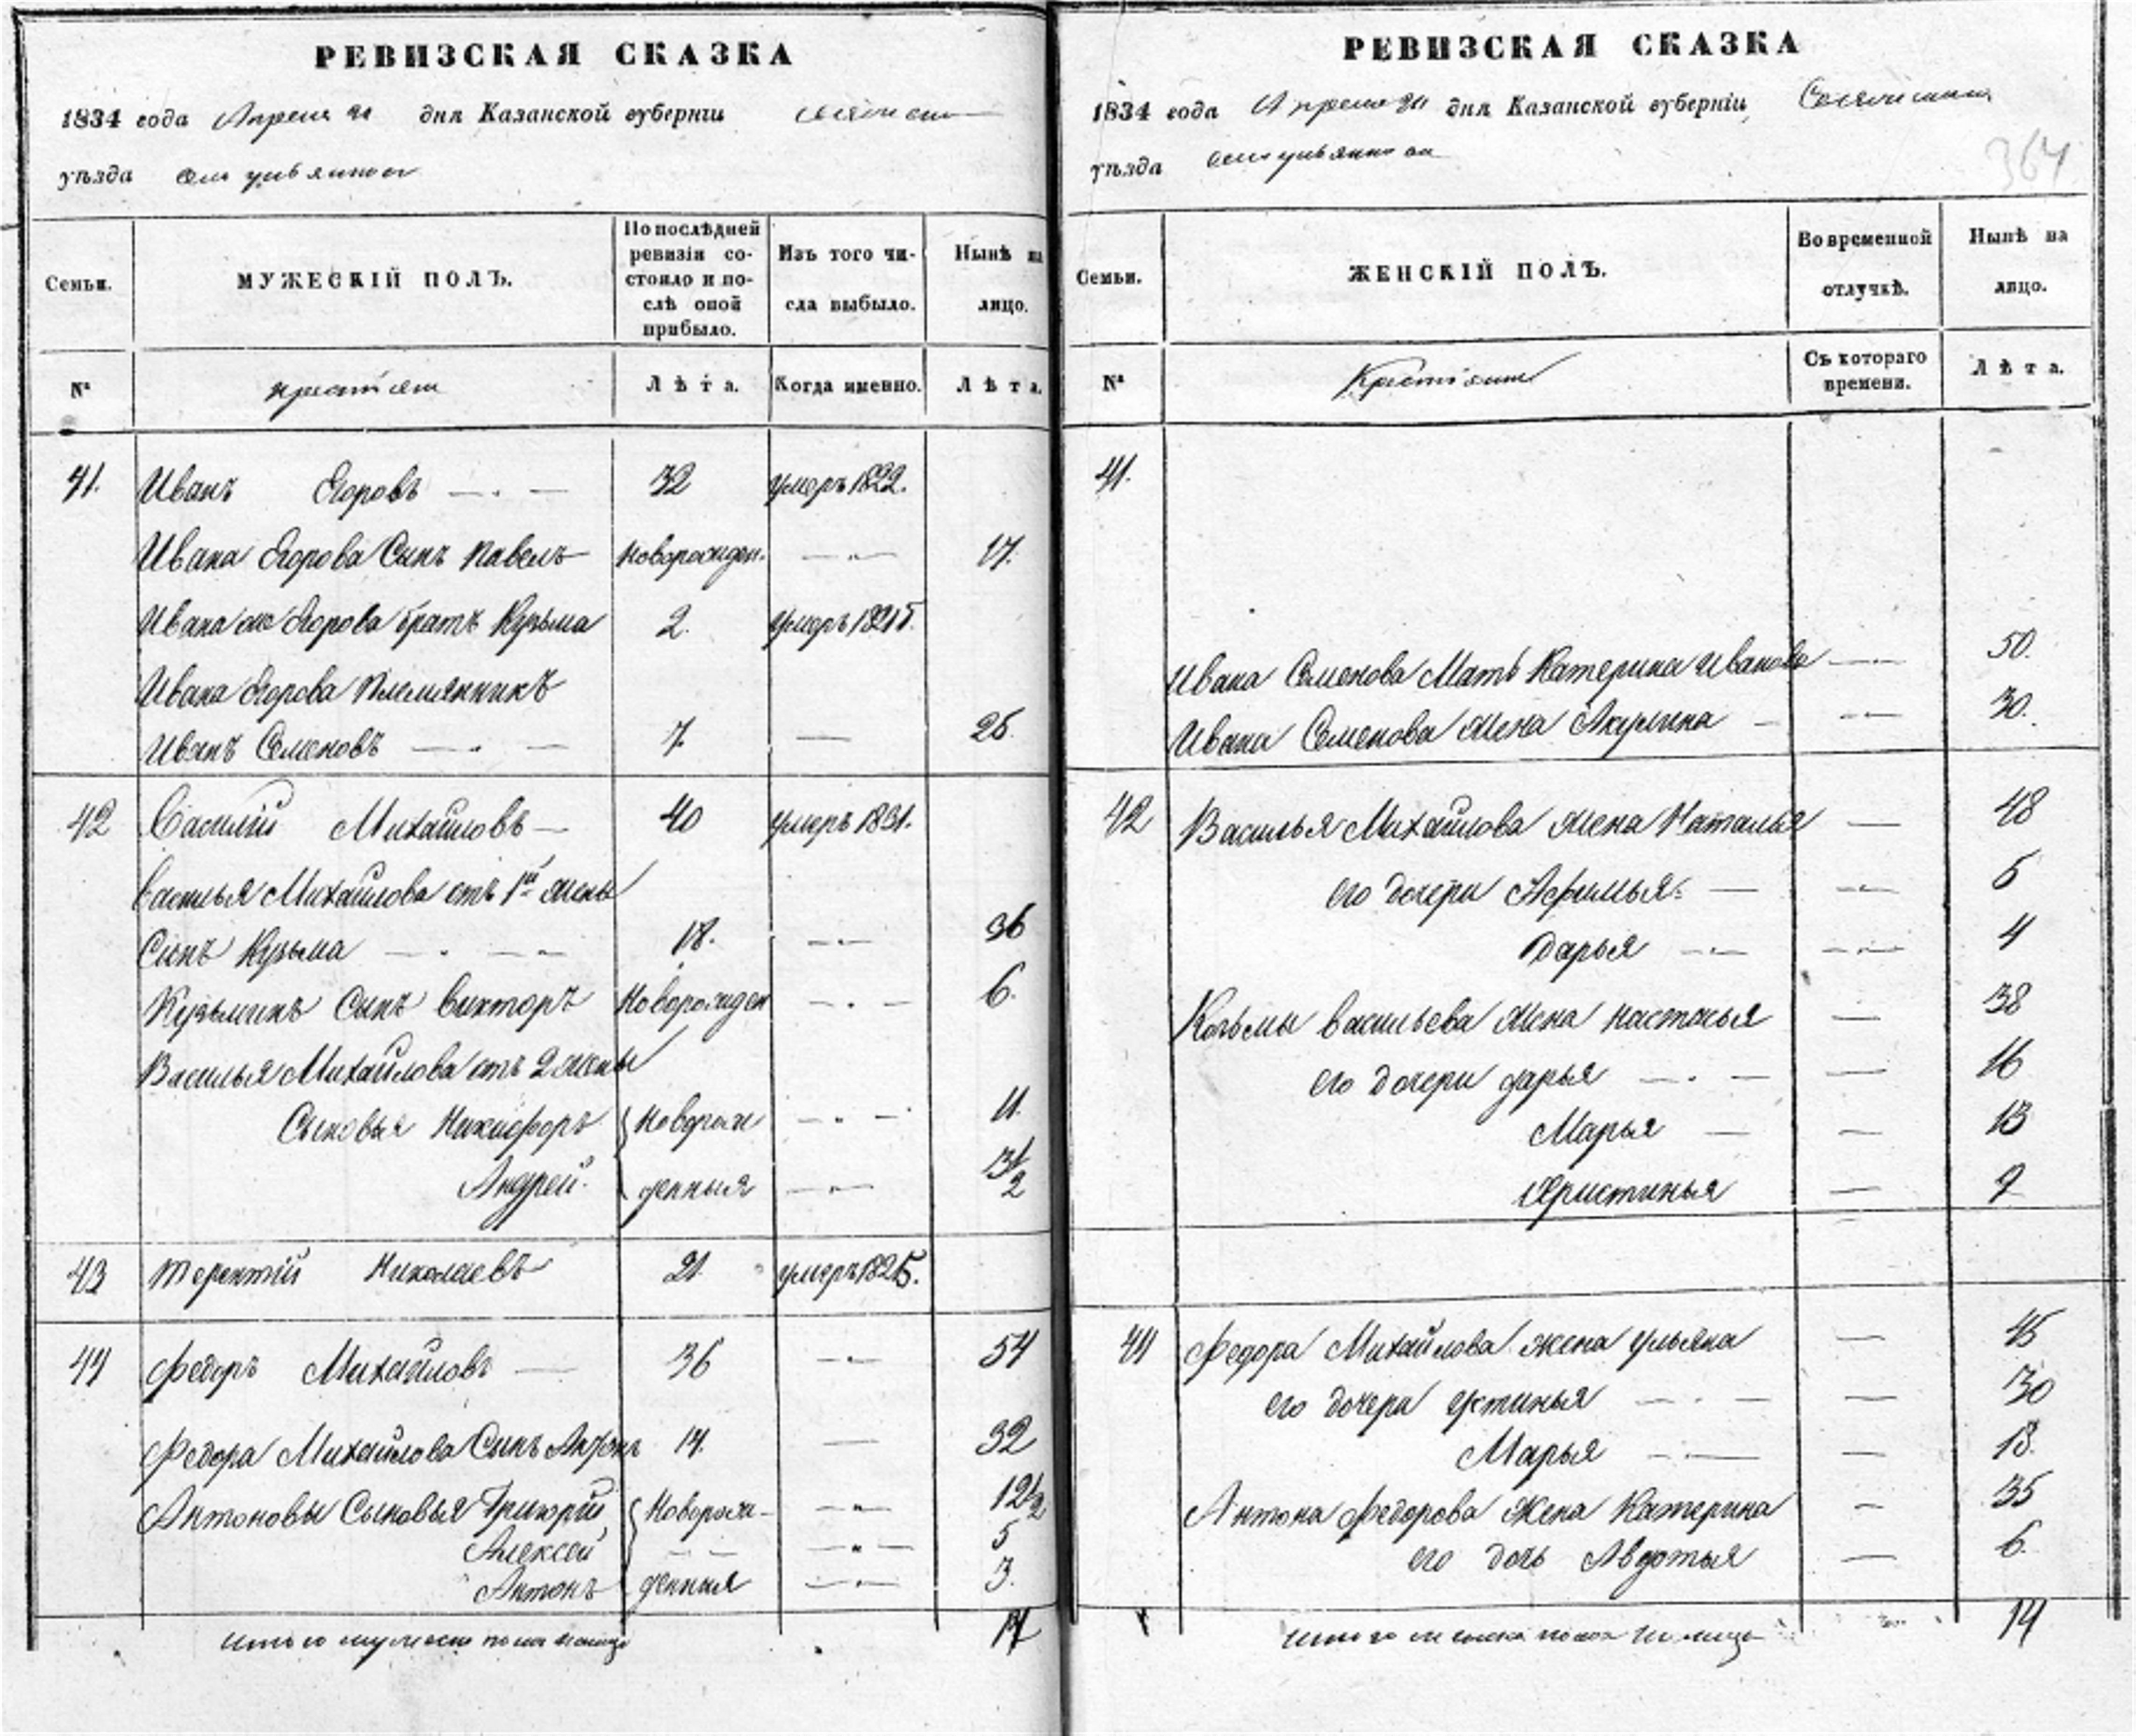 РЕВИЗСКАЯ СКАЗКА
1834 года Апреля 21 дня Казанской губернiи
уѣзда
Семьи.
МУЖЕСКIЙ ПОЛЪ.
По послѣдней ревизiи состояло и послѣ оной прибыло.
Изъ того числа выбыло.
Нынѣ на лицо.
№
Лѣта.
Когда именно.
Лѣта.
41. Иванъ Егоровъ — 32 умеръ 1822.
Ивана Егорова Сынъ Павелъ новорожден. — 17.
Ивана же Егорова братъ Кузьма 2. умеръ
Ивана Егорова Племянникъ
Иванъ Семеновъ — 7. — 25.
42 Василiй Михайловъ — 40 умеръ 1831.
Василья Михайлова отъ 1й жены
Сынъ Кузьма — 18. — 36
Кузьминъ Сынъ Викторъ Новорожден — 6.
Василья Михайлова отъ 2 жены
Сыновья Никифоръ Новорож — 11.
Андрей. денныя — 3 1/2
43 Терентiй Николаевъ 21. умеръ 1825.
44 Федоръ Михайловъ — 36 — 54
Федора Михайлова Сынъ Антонъ 14. — 32
Антоновы Сыновья Григорiй Новорож- — 12 1/2
Алексей — 5
Антонъ денныя — 3.
17
РЕВИЗСКАЯ СКАЗКА
1834 года Апреля 21 дня Казанской губернiи,
уѣзда
364
Семьи.
ЖЕНСКIЙ ПОЛЪ.
Во временной отлучкѣ.
Нынѣ на лицо.
№
Съ котораго времени.
Лѣта.
41.
Ивана Семенова Мать Катерина Иванова — 50.
Ивана Семенова жена Акулина — 30.
42 Василья Михайлова жена Наталья — 48
его дочери Афимья — 5
Дарья — 4
Козьмы Васильева жена Настасья — 38
его дочери Дарья — 16
Марья — 13
Христинья — 9
44 Федора Михайлова жена Ульяна — 45
его дочери Устинья — 30
Марья — 18.
Антона Федорова Жена Катерина — 35
его дочь Авдотья — 6.
14